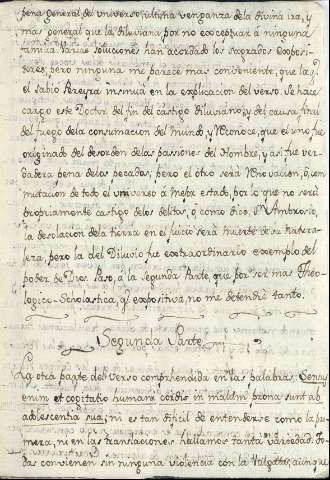 pena general del universo, ultima venganza de la divina ira, y
mas general que la diluviana por no exceptuar à ninguna
Varias soluciones han acordado los sagrados Exposi-
tores, pero ninguna me parece mas conveniente, que la q.e
el sabio Pereyra insinua en la explicacion del verso. Se hace
cargo este Doctor del fin del castigo diluviano, y del causa final
del fuego de la consumacion del Mundo, y reconoce, que el uno fue
originado del desorden de las passiones del Hombre, y assi fue ver-
dadera pena de los pecados, pero el otro serà renovacion, ò, com
mutacion de todo el universo à mejor estado, por lo que no serà
propriamente castigo de los delitos, ò como dice, S.n Ambrosio,
la desolacion de la tierra en el juicio serà muerte de su natura-
leza, pero la del Diluvio fue extraordinario exemplo del
poder de Dios. Paso, à la segunda Parte, que por ser mas Theo-
logico-Scholastica, q.e expositiva no me detendrè tanto.
Segunda Parte
La otra parte del Verso comprehendida en las palabras, Sensus
enim, et cogitatio humani cordis in malum prona sunt ab
adolescentia sua; ni es tan dificil de entenderse como la pri-
mera, ni en las translaciones hallamos tanta variedad. To-
das convienen sin ninguna violencia con la Vulgata, aunque